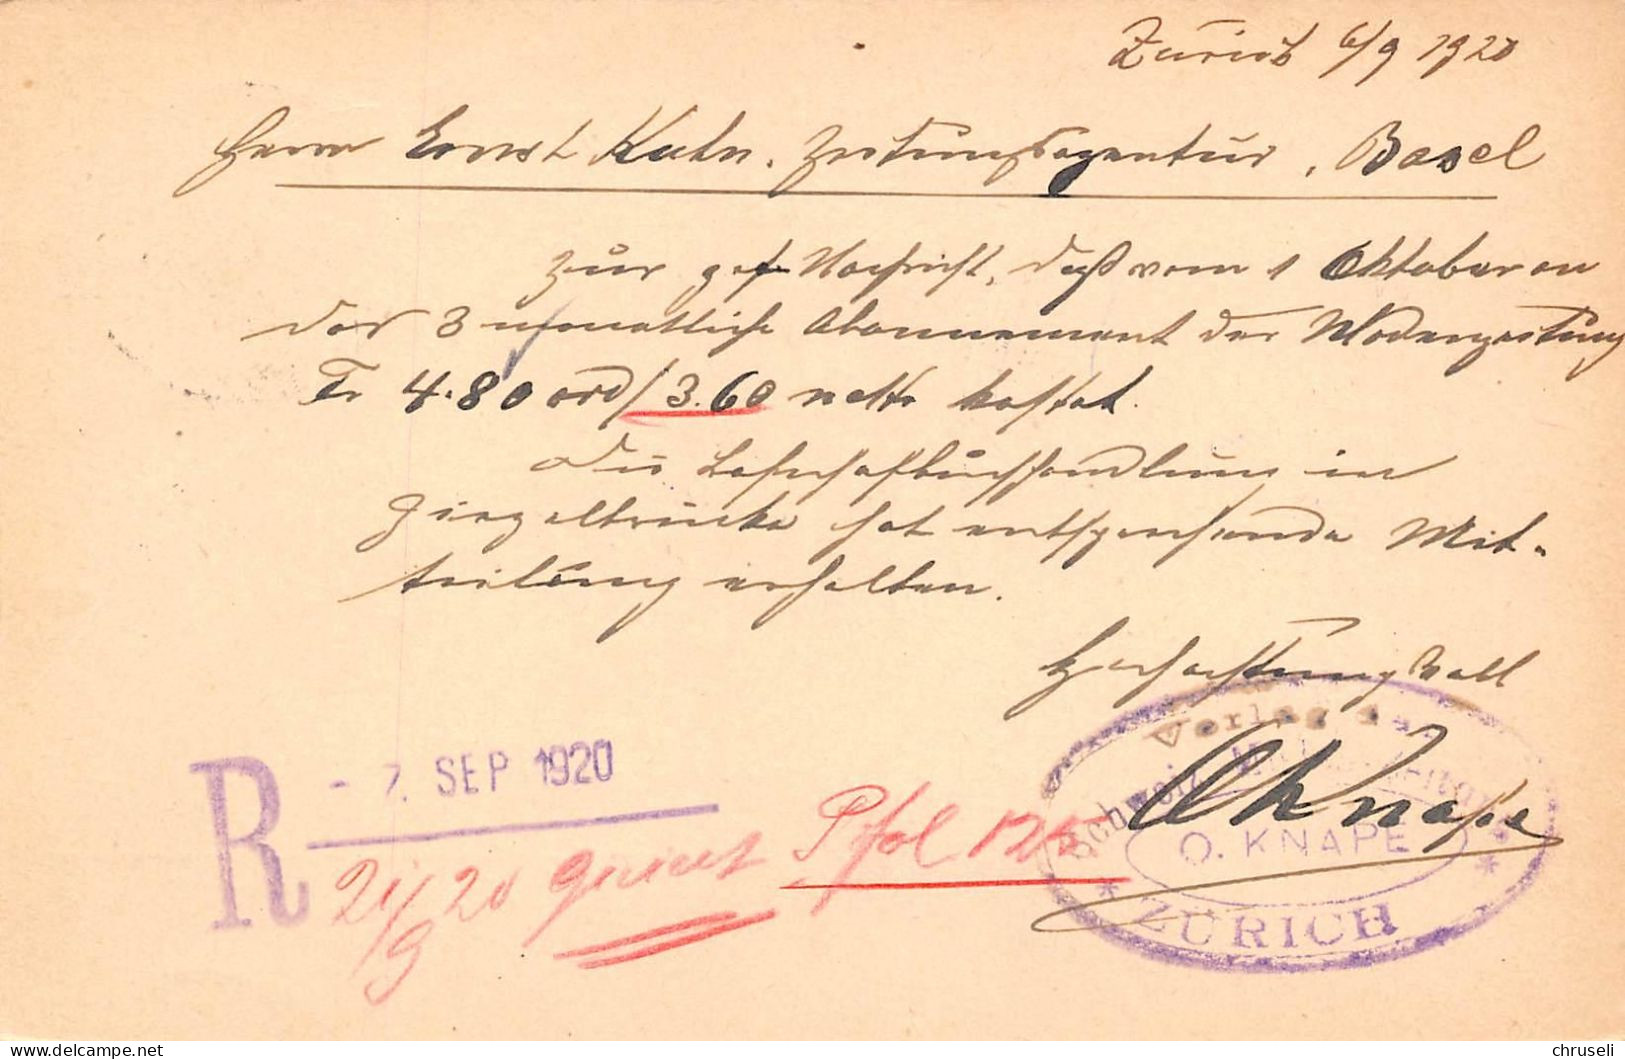 Zürich 6/9 1920
Herrn Ernst Kuhn, Zeitungsagentur, Basel
Zur gef. Nachricht, daß vom 1 Oktober an
das 3 monatliche Abonnement der Modenzeitung
Fr 4.80 ord/3.60 netto kostet.
Die Bahnhofbuchhandlung in
Ziegelbrücke hat entsprechende Mit-
teilung erhalten.
Hochachtungsvoll
OKnape
Verlag d.
Schweiz.
O. KNAPE
* ZÜRICH *
R - 7. SEP 1920
21/9 20 Pfol 125
chruseli